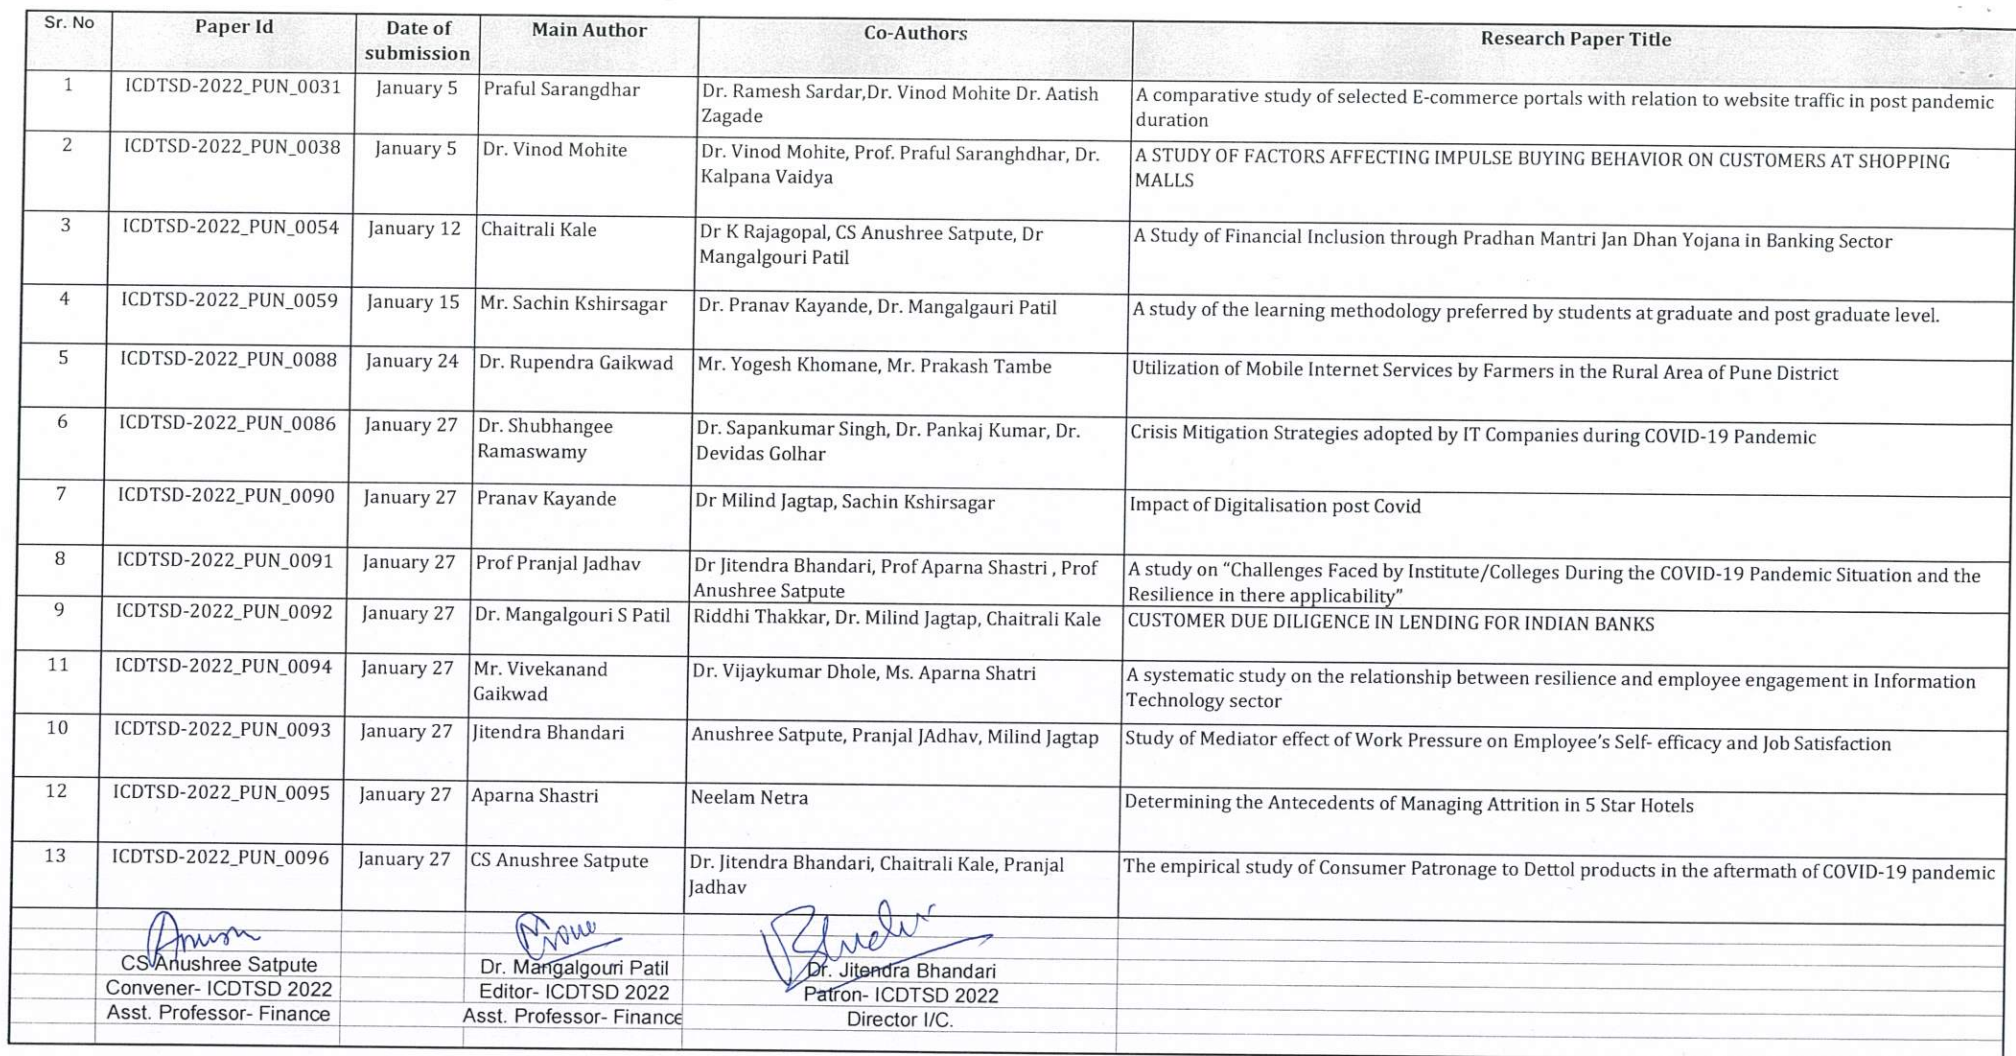 Sr. No Paper Id Date of submission Main Author Co-Authors Research Paper Title
1 ICDTSD-2022_PUN_0031 January 5 Praful Sarangdhar Dr. Ramesh Sardar,Dr. Vinod Mohite Dr. Aatish Zagade A comparative study of selected E-commerce portals with relation to website traffic in post pandemic duration
2 ICDTSD-2022_PUN_0038 January 5 Dr. Vinod Mohite Dr. Vinod Mohite, Prof. Praful Saranghdhar, Dr. Kalpana Vaidya A STUDY OF FACTORS AFFECTING IMPULSE BUYING BEHAVIOR ON CUSTOMERS AT SHOPPING MALLS
3 ICDTSD-2022_PUN_0054 January 12 Chaitrali Kale Dr K Rajagopal, CS Anushree Satpute, Dr Mangalgouri Patil A Study of Financial Inclusion through Pradhan Mantri Jan Dhan Yojana in Banking Sector
4 ICDTSD-2022_PUN_0059 January 15 Mr. Sachin Kshirsagar Dr. Pranav Kayande, Dr. Mangalgauri Patil A study of the learning methodology preferred by students at graduate and post graduate level.
5 ICDTSD-2022_PUN_0088 January 24 Dr. Rupendra Gaikwad Mr. Yogesh Khomane, Mr. Prakash Tambe Utilization of Mobile Internet Services by Farmers in the Rural Area of Pune District
6 ICDTSD-2022_PUN_0086 January 27 Dr. Shubhangee Ramaswamy Dr. Sapankumar Singh, Dr. Pankaj Kumar, Dr. Devidas Golhar Crisis Mitigation Strategies adopted by IT Companies during COVID-19 Pandemic
7 ICDTSD-2022_PUN_0090 January 27 Pranav Kayande Dr Milind Jagtap, Sachin Kshirsagar Impact of Digitalisation post Covid
8 ICDTSD-2022_PUN_0091 January 27 Prof Pranjal Jadhav Dr Jitendra Bhandari, Prof Aparna Shastri , Prof Anushree Satpute A study on “Challenges Faced by Institute/Colleges During the COVID-19 Pandemic Situation and the Resilience in there applicability”
9 ICDTSD-2022_PUN_0092 January 27 Dr. Mangalgouri S Patil Riddhi Thakkar, Dr. Milind Jagtap, Chaitrali Kale CUSTOMER DUE DILIGENCE IN LENDING FOR INDIAN BANKS
11 ICDTSD-2022_PUN_0094 January 27 Mr. Vivekanand Gaikwad Dr. Vijaykumar Dhole, Ms. Aparna Shatri A systematic study on the relationship between resilience and employee engagement in Information Technology sector
10 ICDTSD-2022_PUN_0093 January 27 Jitendra Bhandari Anushree Satpute, Pranjal JAdhav, Milind Jagtap Study of Mediator effect of Work Pressure on Employee’s Self- efficacy and Job Satisfaction
12 ICDTSD-2022_PUN_0095 January 27 Aparna Shastri Neelam Netra Determining the Antecedents of Managing Attrition in 5 Star Hotels
13 ICDTSD-2022_PUN_0096 January 27 CS Anushree Satpute Dr. Jitendra Bhandari, Chaitrali Kale, Pranjal Jadhav The empirical study of Consumer Patronage to Dettol products in the aftermath of COVID-19 pandemic
CS Anushree Satpute Dr. Mangalgouri Patil Dr. Jitendra Bhandari
Convener- ICDTSD 2022 Editor- ICDTSD 2022 Patron- ICDTSD 2022
Asst. Professor- Finance Asst. Professor- Finance Director I/C.